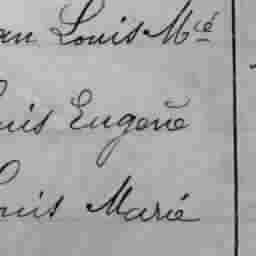 an Louis Mcé
uis Eugène
ouis Marié